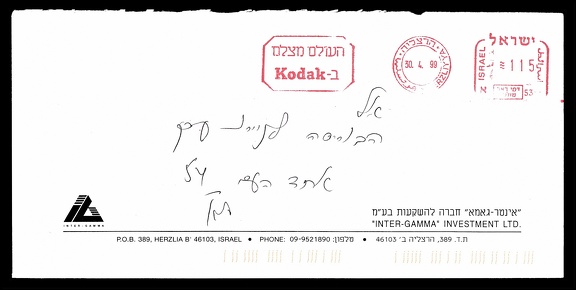 העולם מצלם
ב-Kodak
הרצליה
30. 4. 99
ישראל
ISRAEL
115
אל
הבורסה לניירות ערך
אחד העם 54
ת"א
INTER-GAMMA
"אינטר-גאמא" חברה להשקעות בע"מ
"INTER-GAMMA" INVESTMENT LTD.
P.O.B. 389, HERZLIA B' 46103, ISRAEL • PHONE: 09-9521890 :טלפון • 46103 'ת.ד. 389, הרצליה ב